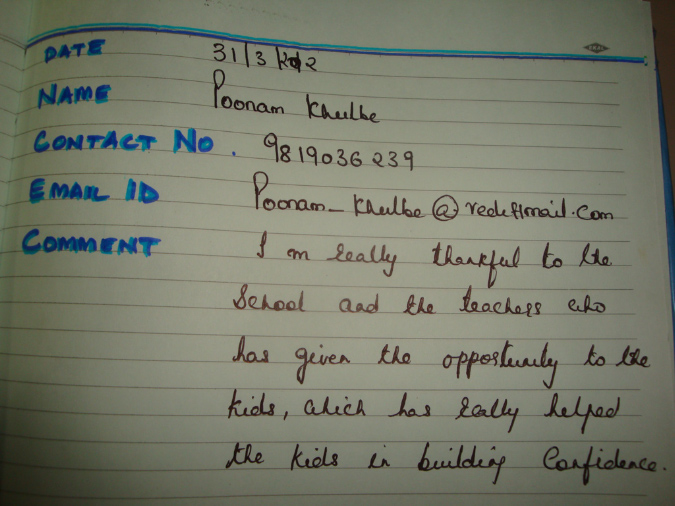 DATE 31/3/2012
NAME Poonam Khulbe
CONTACT NO. 9819036239
EMAIL ID Poonam_Khulbe@rediffmail.com
COMMENT I m really thankful to the
School and the teachers who
has given the opportunity to the
kids, which has really helped
the kids in building Confidence.